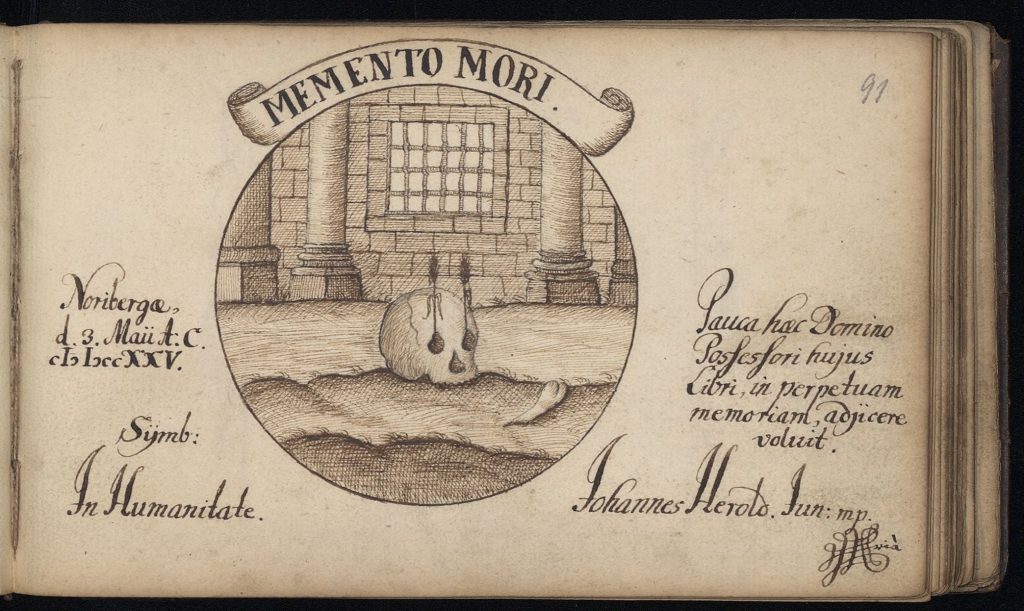 MEMENTO MORI.
91
Noribergæ,
d. 3. Maii A. C.
cIɔ Iɔcc XXV.
Sÿmb:
In Humanitate.
Pauca hæc Domino
Possessori hujus
Libri, in perpetuam
memoriam, adjicere
voluit.
Johannes Herold. Jun: mp.